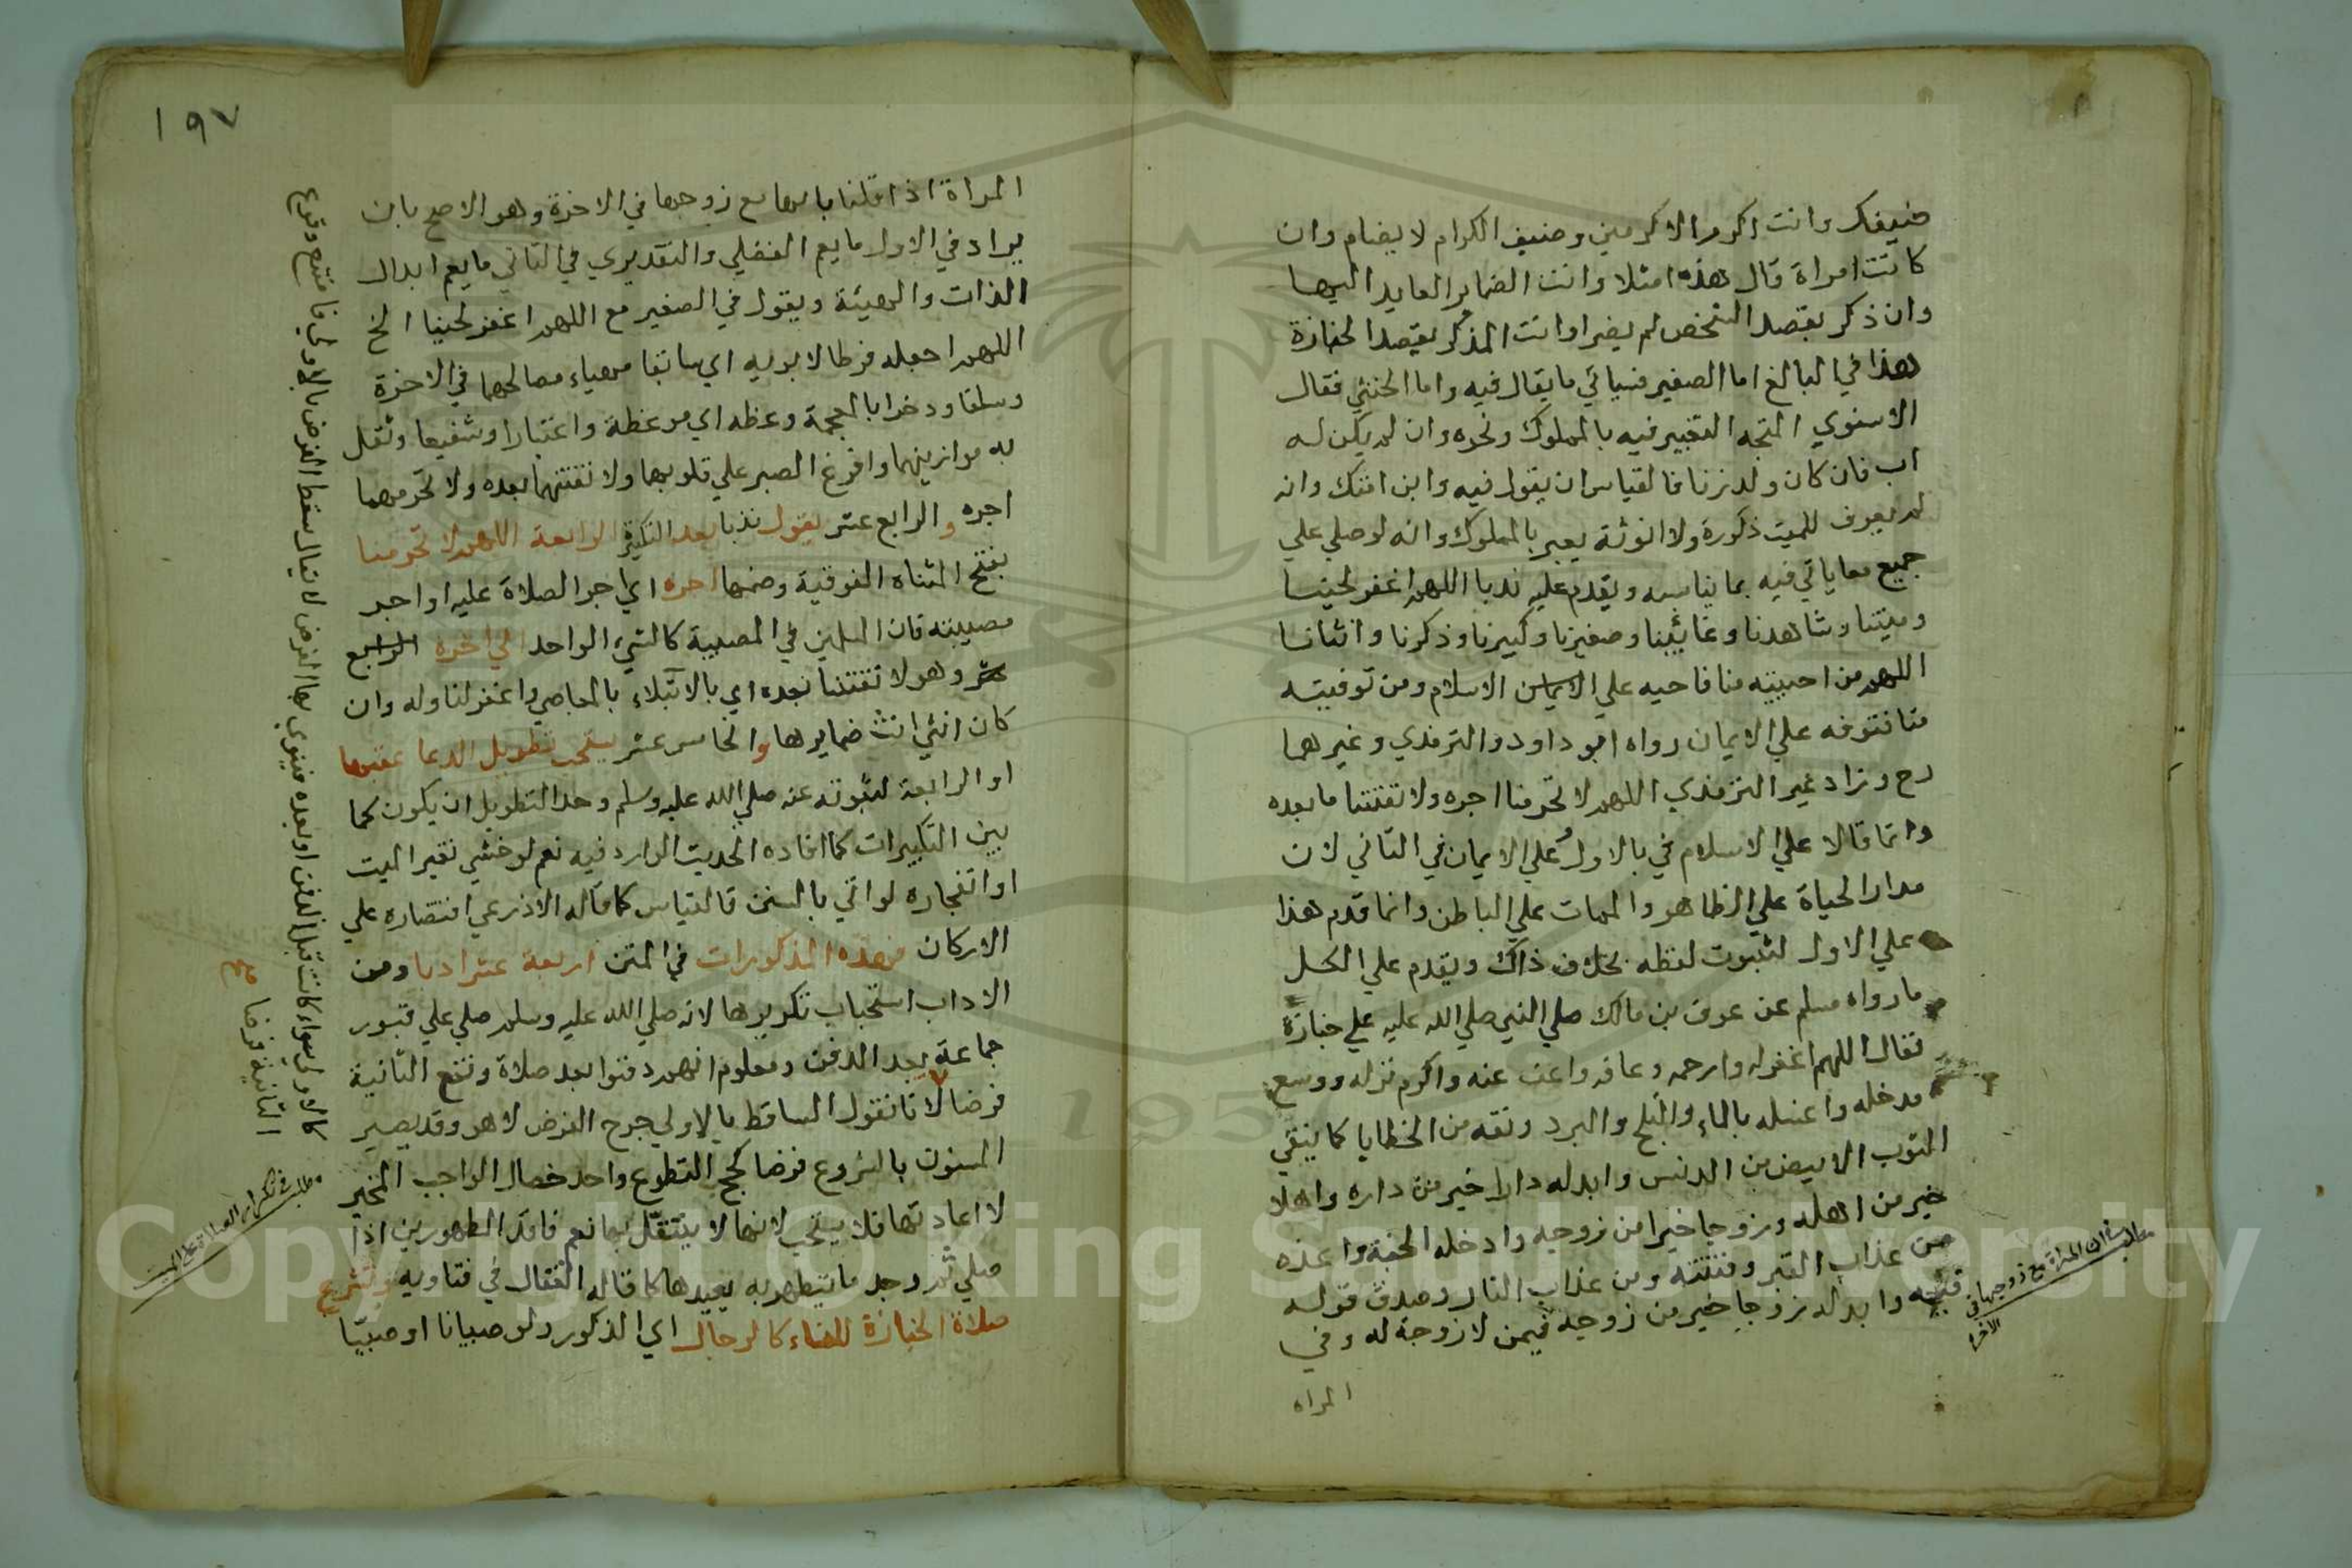 ضيفك وانت اكرم الاكرمين وضيف الكرام لا يضام وان
كانت امراة قال هذه امتك وانث الضماير العايد اليها
وان ذكر بقصد الشخص لم يضر اوانث المذكر بقصد الجنازة
هذا في البالغ اما الصغير فسياتي ما يقال فيه واما الخنثي فقال
الاسنوي المتجه التعبير فيه بالمملوك ونحوه وان لم يكن له
اب فان كان ولد زنا فالقياس ان يقول فيه وابن امتك وانه
لم يعرف للميت ذكورة ولا انوثة يعبر بالمملوك وانه لو صلي علي
جميع معاياتي فيه بما يناسبه ويقدم عليه ندبا اللهم اغفر لحينا
وميتنا وشاهدنا وغائبنا وصغيرنا وكبيرنا وذكرنا وانثانا
اللهم من احييته منا فاحيه علي الاسلام ومن توفيته
منا فتوفه علي الايمان رواه ابو داود والترمذي وغيرهما
رح وزاد غير الترمذي اللهم لا تحرمنا اجره ولا تفتنا مابعده
وانما قالا علي الاسلام في بالاول وعلي الايمان في الثاني لان
مدار الحياة علي الظاهر والممات علي الباطن وانما قدم هذا
علي الاول لثبوت لفظه بخلاف ذاك ويقدم علي الكل
ما رواه مسلم عن عوف بن مالك صلي النبي صلي الله عليه علي جنازة
فقال اللهم اغفر له وارحمه وعافه واعف عنه واكرم نزله ووسع
مدخله واغسله بالماء والثلج والبرد ونقه من الخطايا كما ينقي
الثوب الابيض من الدنس وابدله دارا خير من داره واهلا
خير من اهله وزوجا خيرا من زوجه وادخله الجنة واعذه
من عذاب القبر وفتنته ومن عذاب النار وصدق قوله
فيه وابدله زوجا خير من زوجه فيمن لا زوجة له وفي
المراه
مطلب في ان المراة مع زوجها في
الاخرة
١٩٧
المراة اذا قلنا بانها مع زوجها في الاخرة وهو الاصح بان
يراد في الاول ما يعم الفعلي والتقديري في الثاني ما يعم ابدال
الذات والهيئة ويقول في الصغير مع اللهم اغفر لحينا الخ
اللهم اجعله فرطا لابويه اي سابقا مهياء مصالحهما في الاخرة
وسلفا وذخرا بالعجمة وعظه اي موعظة واعتبارا وشفيعا وثقل
به موازينهما وافرغ الصبر علي قلوبهما ولا تفتنهما بعده ولا تحرمهما
اجره والرابع عشر يقول ندبا بعد التكبير الرابعة اللهم لا تحرمنا
بفتح المثناه الفوقية وضمها اجره اي اجر الصلاة عليه او اجر
مصيبته فان المسلمين في المصيبة كالشيء الواحد الي اخره الرابع
عشر وهو لا تفتنا بعده اي بالابتلاء بالمعاصي واغفر لنا وله وان
كان انثي انث ضمايرها والخامس عشر يستحب تطويل الدعا عقبها
او الرابعة لثبوته عنه صلي الله عليه وسلم وحد التطويل ان يكون كما
بين التكبيرات كما افاده الحديث الوارد فيه نعم لو خشي تغير الميت
او انفجاره لو اتي بالسنن فالقياس كما قاله الاذرعي اقتصاره علي
الاركان فهذه المذكورات في المتن اربعة عشر ادبا ومن
الاداب استحباب تكريرها لانه صلي الله عليه وسلم صلي علي قبور
جماعة بعد الدفن ومعلوم انهم دفنوا بعد صلاة وتقع الثانية
فرضا لانا نقول الساقط بالاولي حرج الفرض لا هو وقد يصير
المسنون بالشروع فرضا كحج التطوع واحد خصال الواجب المخير
لا اعادتها فلا يستحب لانها لا يتنفل بها نعم فاقد الطهورين اذا
صلي ثم وجد ما يتطهر به يعيدها كما قاله القفال في فتاويه وتشرع
صلاة الجنازة للنساء كالرجال اي الذكور ولو صبيانا او صبيا
كالاولي سواء كانت قبل الدفن او بعده فينوي بها الفرض لا يقال سقط الفرض بالاولي فامتنع وقوع
الثانية فرضا
مطلب في تكرار الصلاة علي الميت